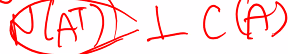 N(Aᵀ) ⊥ C(A)